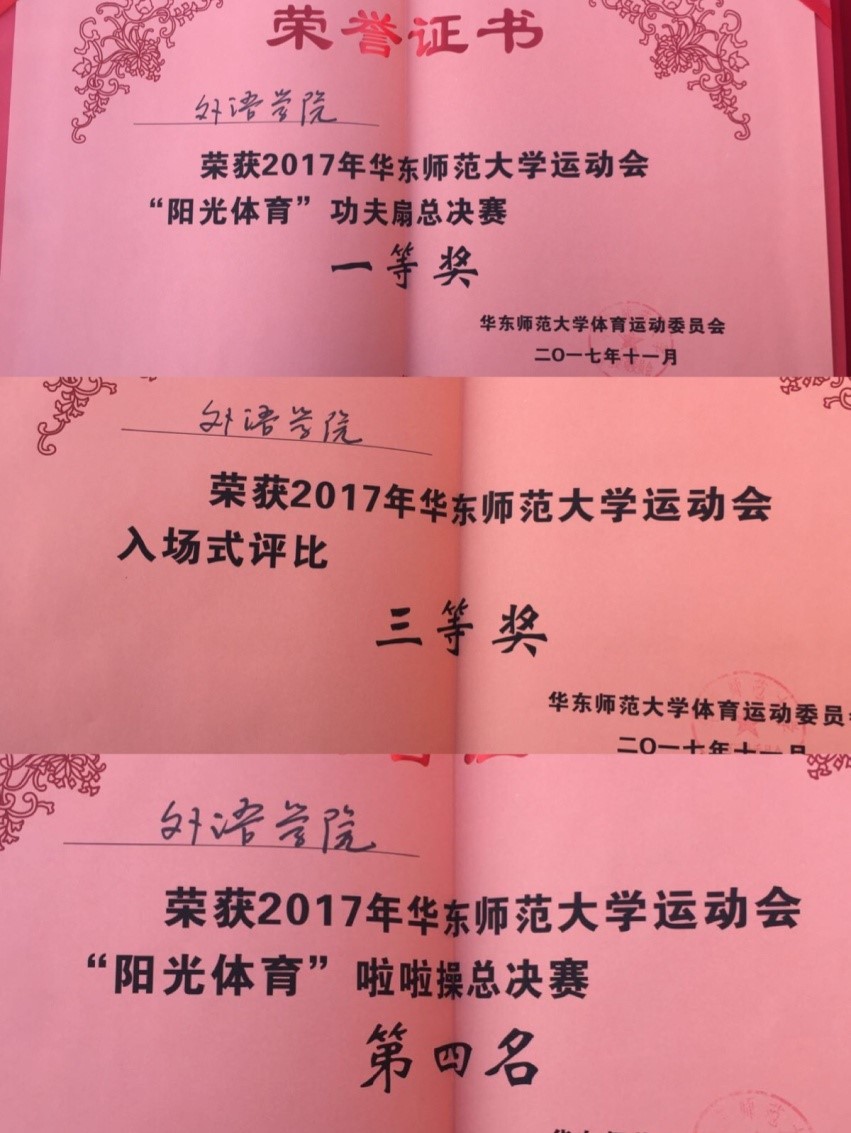 荣誉证书
外语学院
荣获2017年华东师范大学运动会
“阳光体育”功夫扇总决赛
一等奖
华东师范大学体育运动委员会
二〇一七年十一月
外语学院
荣获2017年华东师范大学运动会
入场式评比
三等奖
华东师范大学体育运动委员
二〇一七年十一月
外语学院
荣获2017年华东师范大学运动会
“阳光体育”啦啦操总决赛
第四名